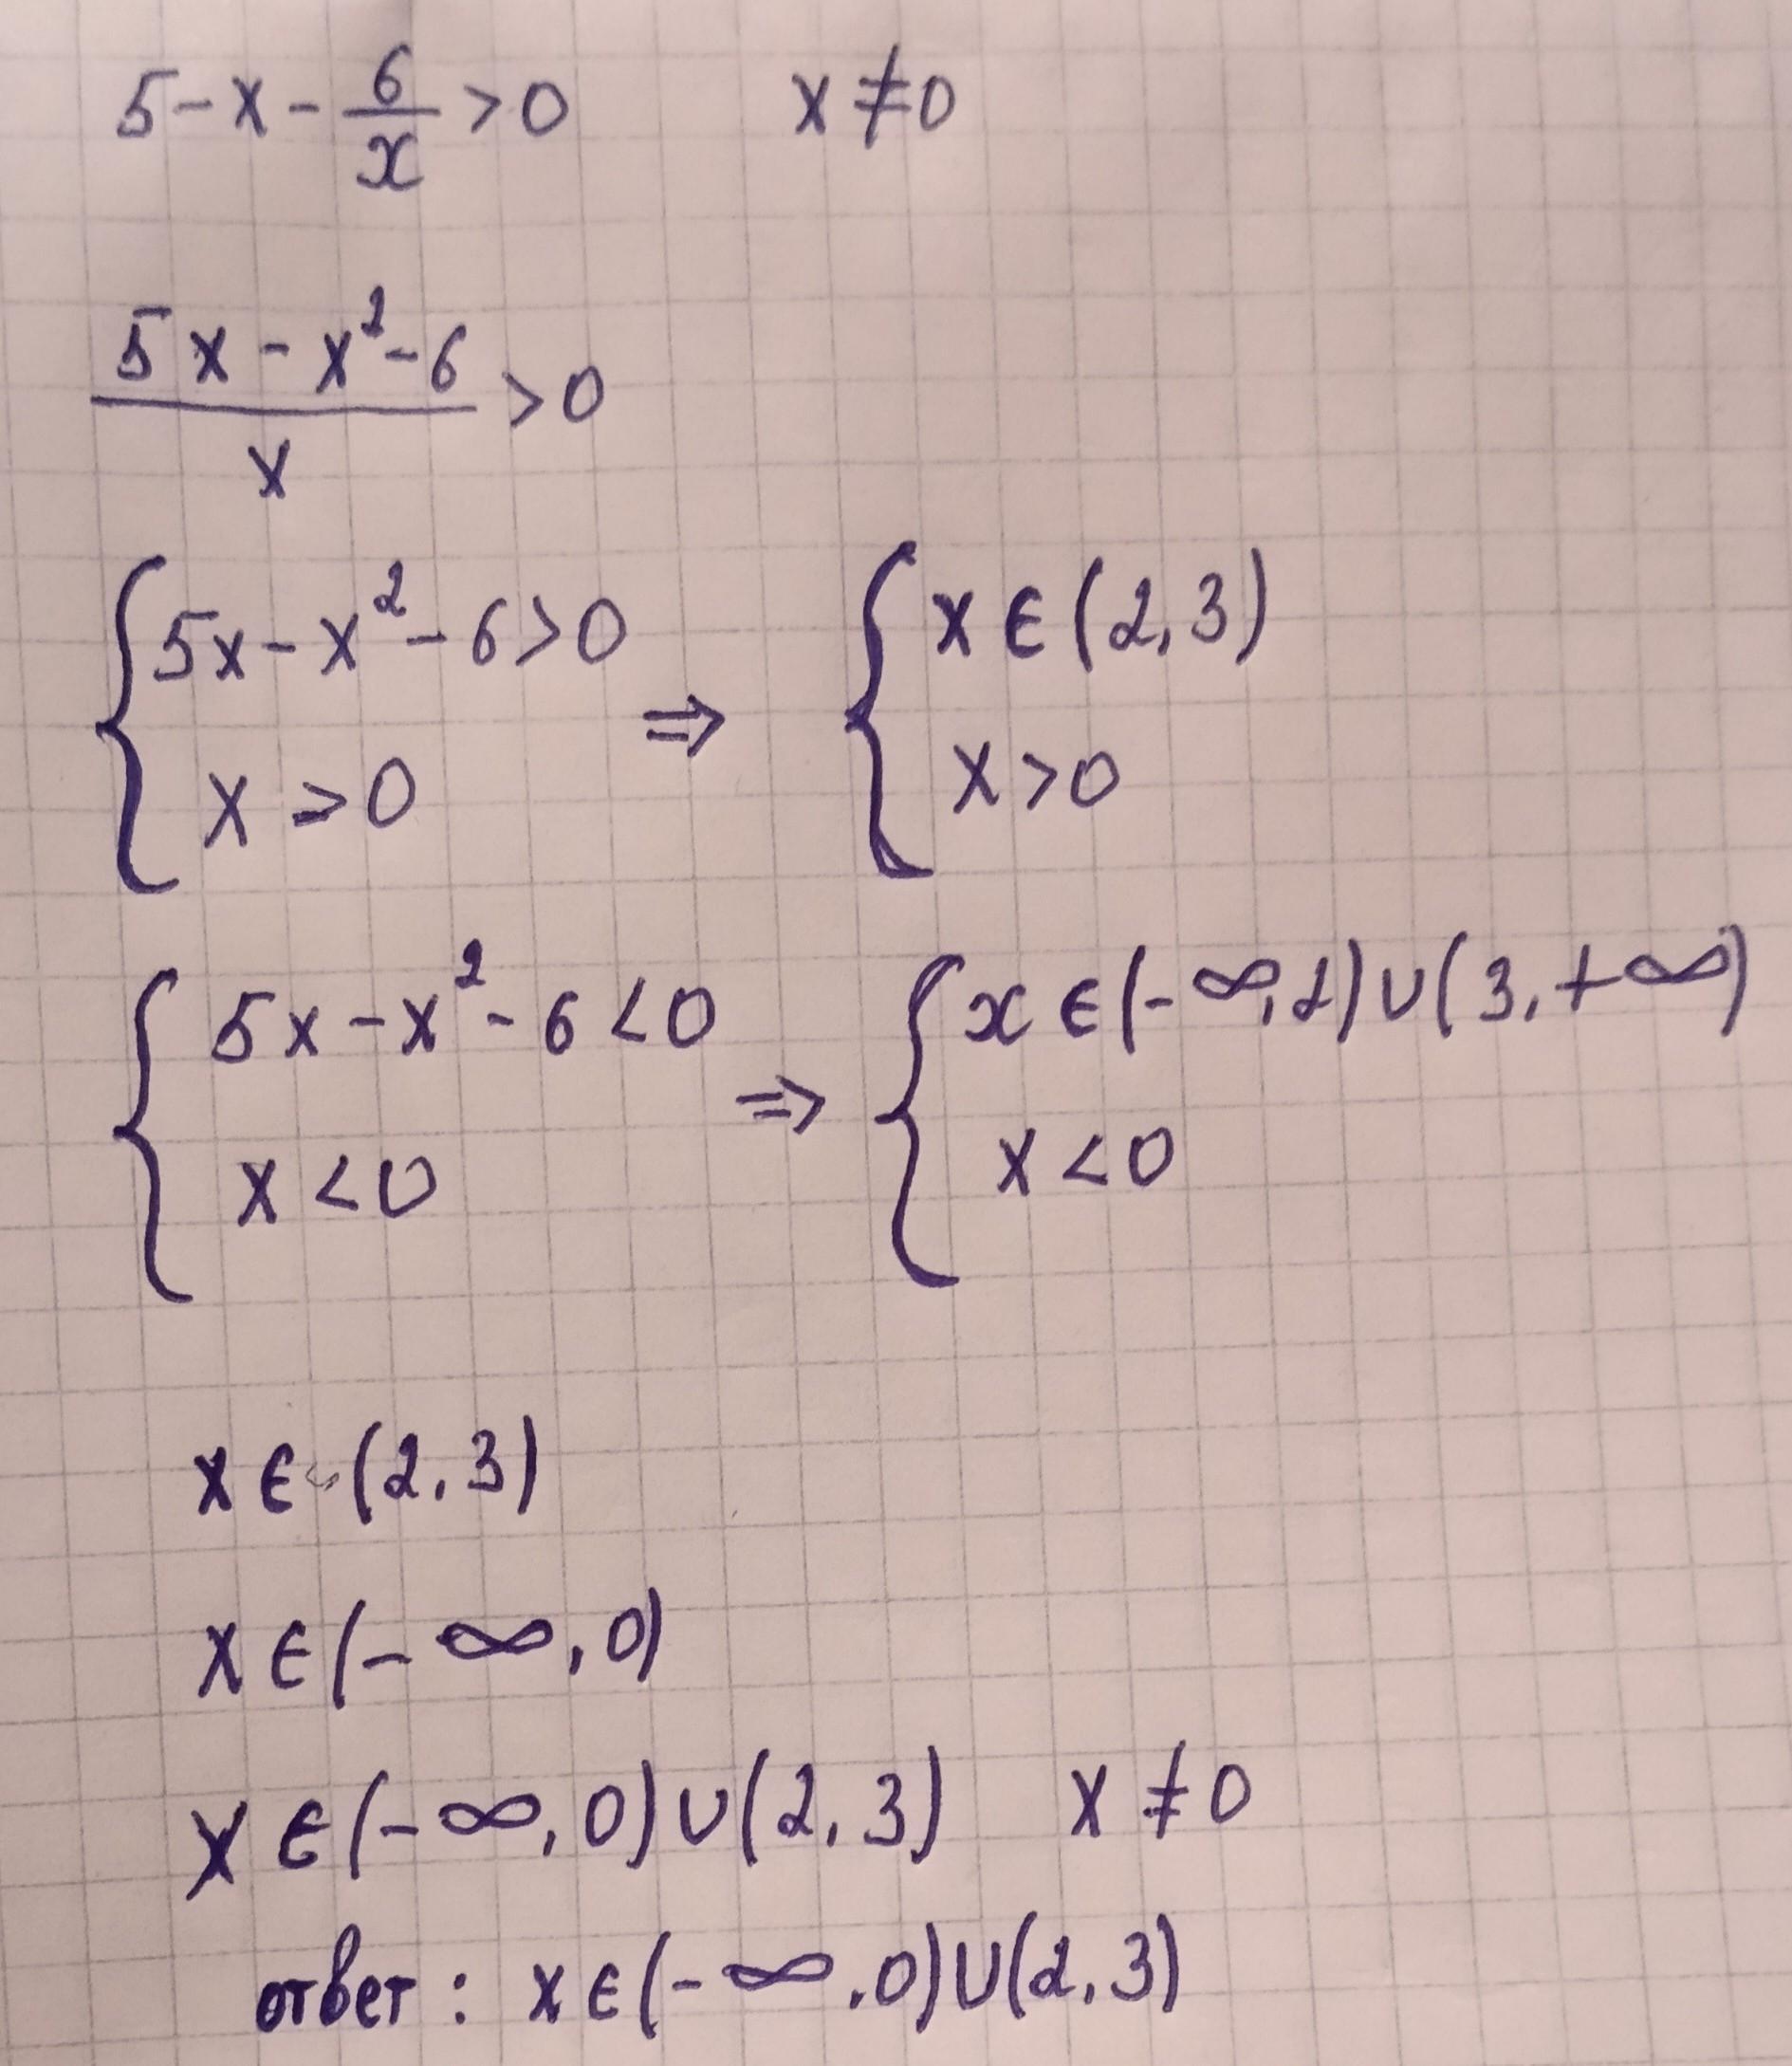 5 - x - 6/x > 0     x ≠ 0
(5x - x² - 6)/x > 0
{ 5x - x² - 6 > 0 ⇒ { x ∈ (2, 3)
{ x > 0 { x > 0
{ 5x - x² - 6 < 0 ⇒ { x ∈ (-∞, 2) ∪ (3, +∞)
{ x < 0 { x < 0
x ∈ (2, 3)
x ∈ (-∞, 0)
x ∈ (-∞, 0) ∪ (2, 3)     x ≠ 0
ответ : x ∈ (-∞, 0) ∪ (2, 3)